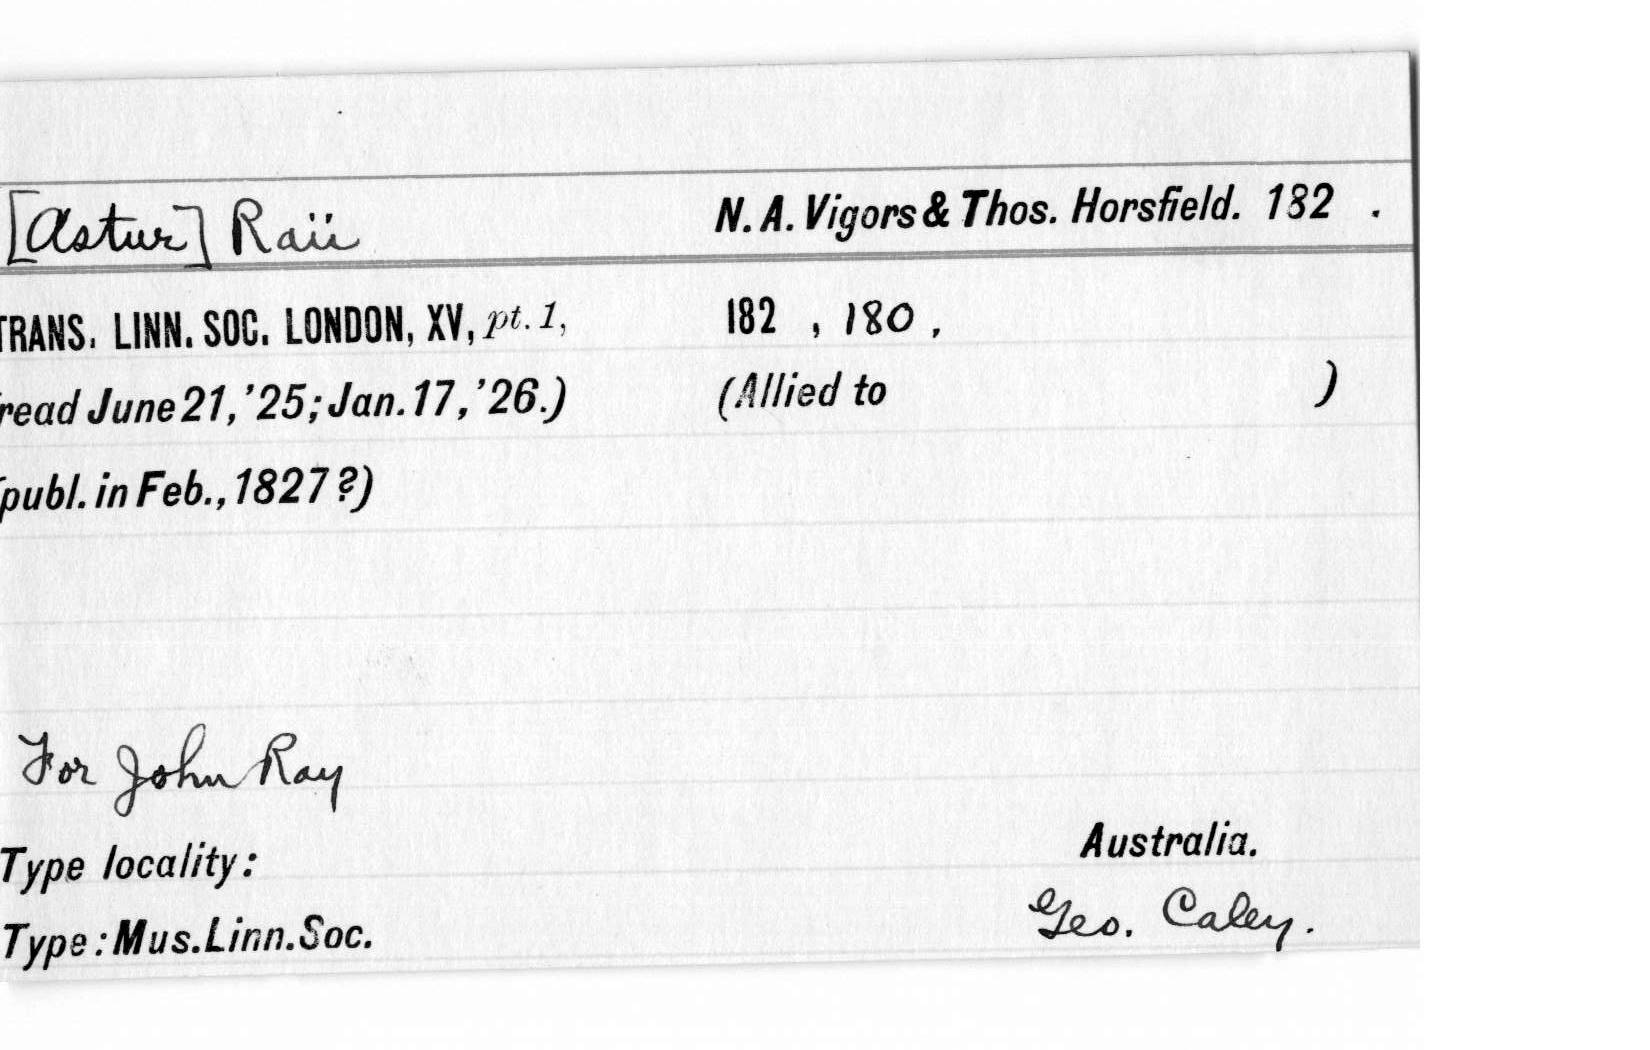 [Astur] Raii N. A. Vigors & Thos. Horsfield. 182 .
TRANS. LINN. SOC. LONDON, XV, pt. 1, 182 , 180 ,
(read June 21, '25; Jan. 17, '26.) (Allied to )
(publ. in Feb., 1827 ?)
For John Ray
Type locality: Australia.
Type: Mus. Linn. Soc. Geo. Caley.